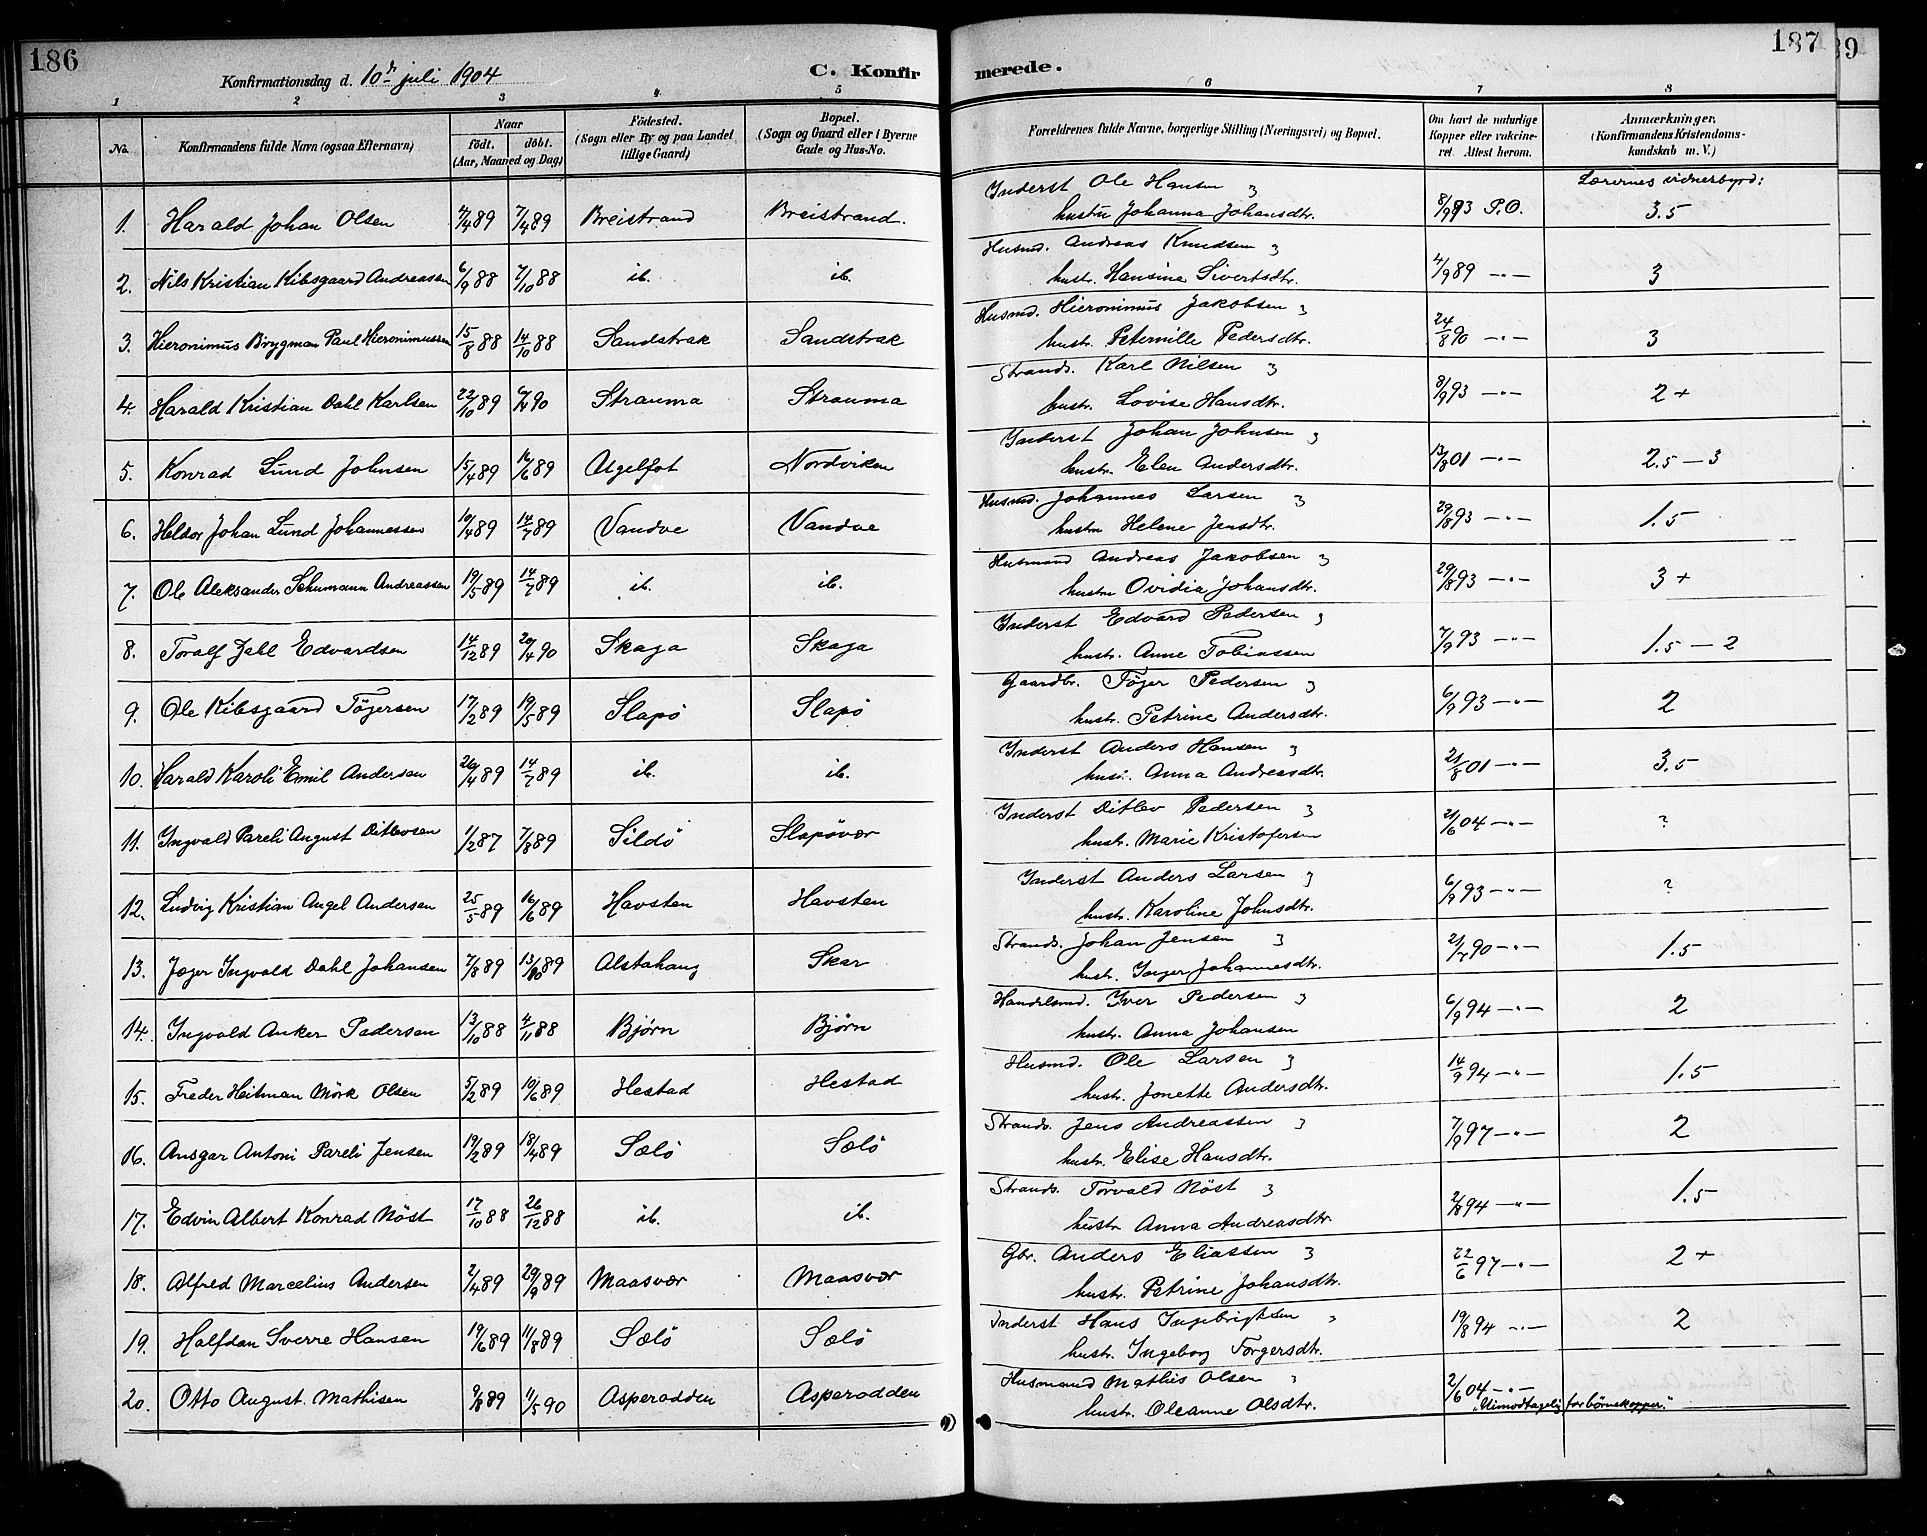 186
Konfirmationsdag d. 10de juli 1904
C. Konfir
merede.
187
39
1 2 3 4 5 6 7 8
No.
Konfirmandens fulde Navn (ogsaa Efternavn)
Naar
födt. döbt.
(Aar, Maaned og Dag)
Födested.
(Sogn eller By og paa Landet
tillige Gaard)
Bopæl.
(Sogn og Gaard eller i Byerne
Gade og Hus-No.
Forældrenes fulde Navne, borgerlige Stilling (Næringsvei) og Bopæl.
Om havt de naturlige
Kopper eller vakcine-
ret. Attest herom.
Anmærkninger.
(Konfirmandens Kristendoms-
kundskab m. V.)
Lærernes vidnesbyrd:
1. Harald Johan Olsen 4/4 89 7/4 89 Breistrand Breistrand. Inderst Ole Hansen
hustru Johanna Johansdtr. 8/9 93 P.O. 3.5
2. Nils Kristian Kibsgaard Andreassen 6/9 88 7/10 88 ib. ib. Husmd. Andreas Knudsen
hustr. Hansine Sivertsdtr. 4/9 89 -"- 3
3. Hieronimus Brygman Paul Hieronimussen 15/8 88 14/10 88 Sandstrak Sandstrak Husmd. Hieronimus Jakobsen
hustr. Peternille Pedersdtr. 24/8 90 -"- 3
4. Harald Kristian Dahl Karlsen 22/10 89 6/4 90 Strauma Strauma Strands. Karl Nilsen
hustr. Lovise Hansdtr. 8/9 93 -"- 2+
5. Konrad Lund Johnsen 15/4 89 16/6 89 Algelfot Nordviken Inderst Johan Johnsen
hustr. Elen Andersdtr. 13/8 01 -"- 2.5 - 3
6. Heldor Johan Lund Johannessen 10/4 89 14/7 89 Vandve Vandve Husmd. Johannes Larsen
hustru Helene Jensdtr. 29/8 93 -"- 1.5
7. Ole Aleksander Schumann Andreassen 19/5 89 14/7 89 ib. ib. Husmand Andreas Jakobsen
hustru Ovidia Johansdtr. 29/8 93 -"- 3+
8. Toralf Zahl Edvardsen 14/12 89 20/4 90 Skaga Skaga Inderst Edvard Pedersen
hustr. Anne Tobiassen 7/9 93 -"- 1.5 - 2
9. Ole Kibsgaard Tögersen 17/2 89 19/5 89 Slapö Slapö Gaardbr. Töger Pedersen
hustr. Petrine Andersdtr. 6/9 93 -"- 2
10. Harald Karoli Emil Andersen 26/4 89 14/7 89 ib. ib. Inderst Anders Hansen
hustr. Anna Andreasdtr. 21/8 01 -"- 3.5
11. Ingvald Pareli August Ditlevsen 1/2 87 7/8 89 Sildö Slapövær Inderst Ditlev Pedersen
hustr. Marie Kristofersen 21/6 04 -"- ?
12. Ludvig Kristian Angel Andersen 25/5 89 16/6 89 Havsten Havsten Inderst Anders Larsen
hustr. Karoline Johnsdtr. 6/9 93 -"- ?
13. Jæger Ingvald Dahl Johansen 7/8 89 13/10 89 Alstahaug Skar Strands. Johan Jensen
hustr. Inger Johannesdtr. 21/7 90 -"- 1.5
14. Ingvald Anker Pedersen 13/10 88 4/11 88 Bjørn Bjørn Handelsmd. Iver Pedersen
hustr. Anna Johansen 6/9 94 -"- 2
15. Freder Heitman Mörk Olsen 5/2 89 10/6 89 Hestad Hestad Husmd. Ole Larsen
hustr. Jonette Andersdtr. 14/9 94 -"- 1.5
16. Ansgar Antoni Pareli Jensen 19/2 89 18/4 89 Sælö Sælö Strands. Jens Andreassen
hustr. Elise Hansdtr. 7/9 97 -"- 2
17. Edvin Albert Konrad Nöst 17/10 88 26/12 88 ib. ib. Strands. Torvald Nöst
hustr. Anna Andreasdtr. 2/8 94 -"- 1.5
18. Alfred Marcelius Andersen 2/4 89 29/9 89 Maasvær Maasvær Gbr. Anders Eliassen
hustr. Petrine Johansdtr. 22/6 97 -"- 2+
19. Halfdan Sverre Hansen 19/6 89 11/8 89 Sælö Sælö Inderst Hans Ingebrigtsen
hustr. Ingeborg Torgersdtr. 19/8 94 -"- 2
20. Otto August Mathisen 9/8 89 11/5 90 Asperodden Asperodden Husmand Mathis Olsen
hustr. Oleanne Olsdtr. 2/6 04 -"-
"Uimodtagelig for börnekopper."